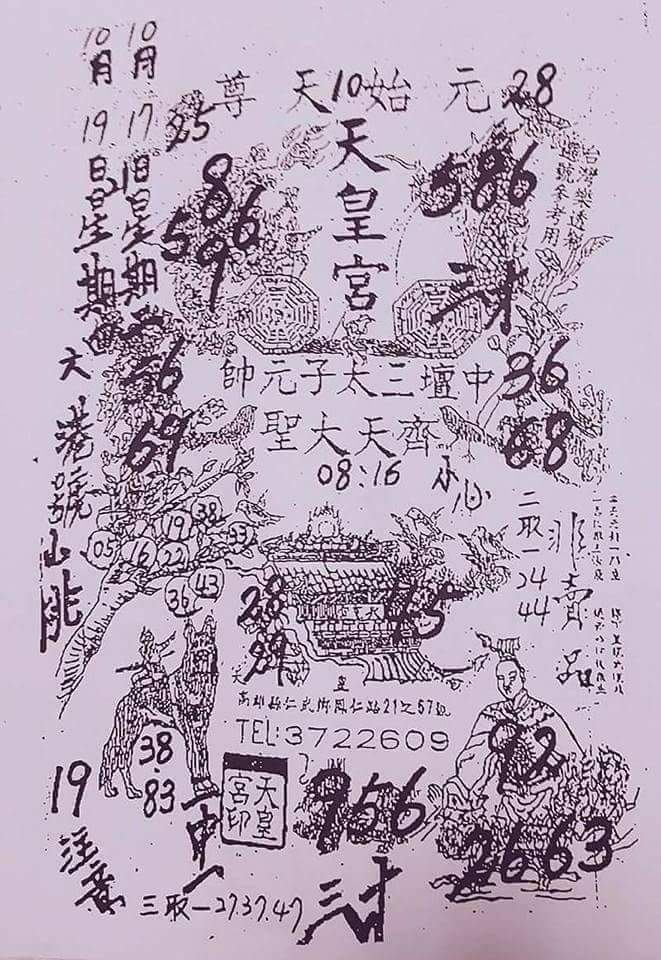 10月19日星期六港號山兆
10月17日星期二
28
元始天尊
10
25
天皇宮
台灣樂透彩
選號參考用
586
8
596
9
三才
56
69
中壇三太子元帥
36
齊天大聖
68
08:16
小心
二取一24
44
非賣品
19
38
05
16
22
33
34
43
28
89
45
高雄縣仁武鄉鳳仁路21之57號
TEL:3722609
38.83
19
注意
一中一
天皇宮印
956
三才
92
2663
三取一27.37.47